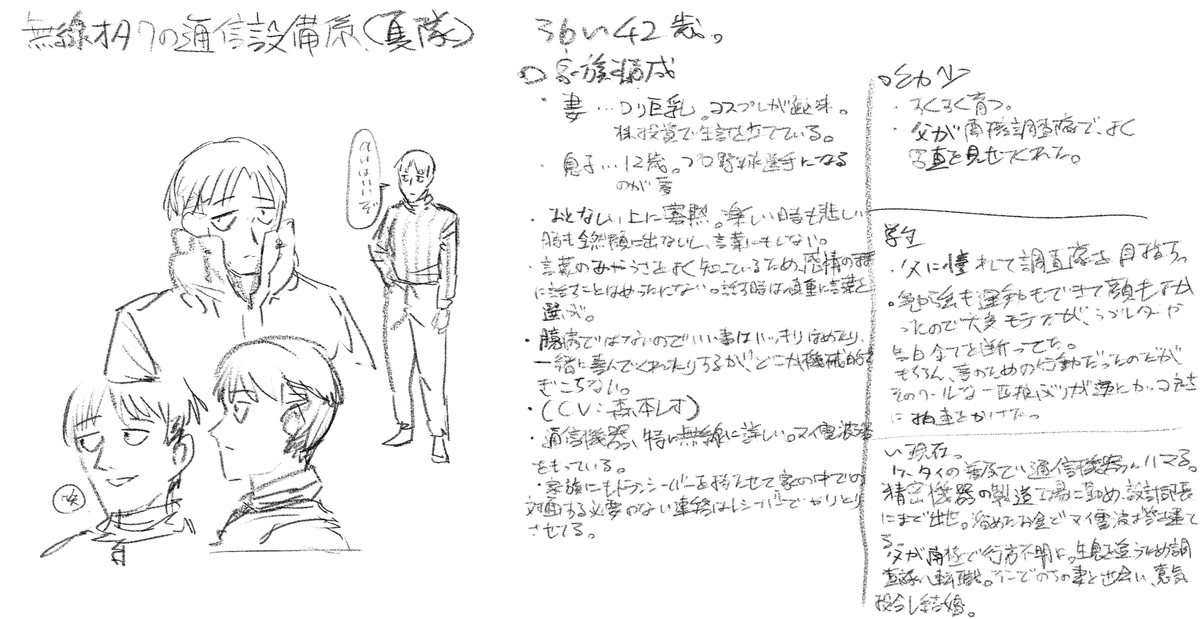 無線オタクの通信設備(夏隊)
36い42歳。
家族構成
・妻…ロリ巨乳。コスプレが趣味。
株投資で生計を立てている。
・息子…12歳。プロ野球選手になる
のが夢
・おとなしい上に寡黙。楽しい時も悲しい
時も全然顔に出ないし、言葉にもしない。
・言葉のあやうさをよく知っているため、感情の
に話すことはめったにない。話す時は慎重に言葉を
選ぶ。
・臆病ではないのでいい事ははっきりほめたり、
一緒に喜んでくれたりするが、どこか機械的で
ぎこちない。
・(CV:森本レオ)
・通信機器、特に無線に詳しい。マイ電波塔
をもっている。
・家族にもトランシーバーを持たせて家の中での
対面する必要のない連絡はレシーバーでやりとり
させてる。
幼少
・すくすく育つ。
・父が南極調査隊で、よく
写真を見せてくれた。
学生
・父に憧れて調査隊を目指す。
・勉強も運動もできて顔もよか
ったので大変モテたが、ラブレターや
告白全てを断ってた。
もちろん、夢のための行動だったのだが
そのクールな一匹狼ぶりが更にカッコよさ
に拍車をかけた。
い現在。
ケータイの普及で通信機器にハマる。
精密機器の製造工場に勤め、設計部長
にまで出世。溜めたお金でマイ電波塔を建て
る。
父が南極で行方不明に。生息を追うため調
査隊へ転職。そこでのちの妻と出会い、意気
投合し結婚。
あいはいいぞ
笑